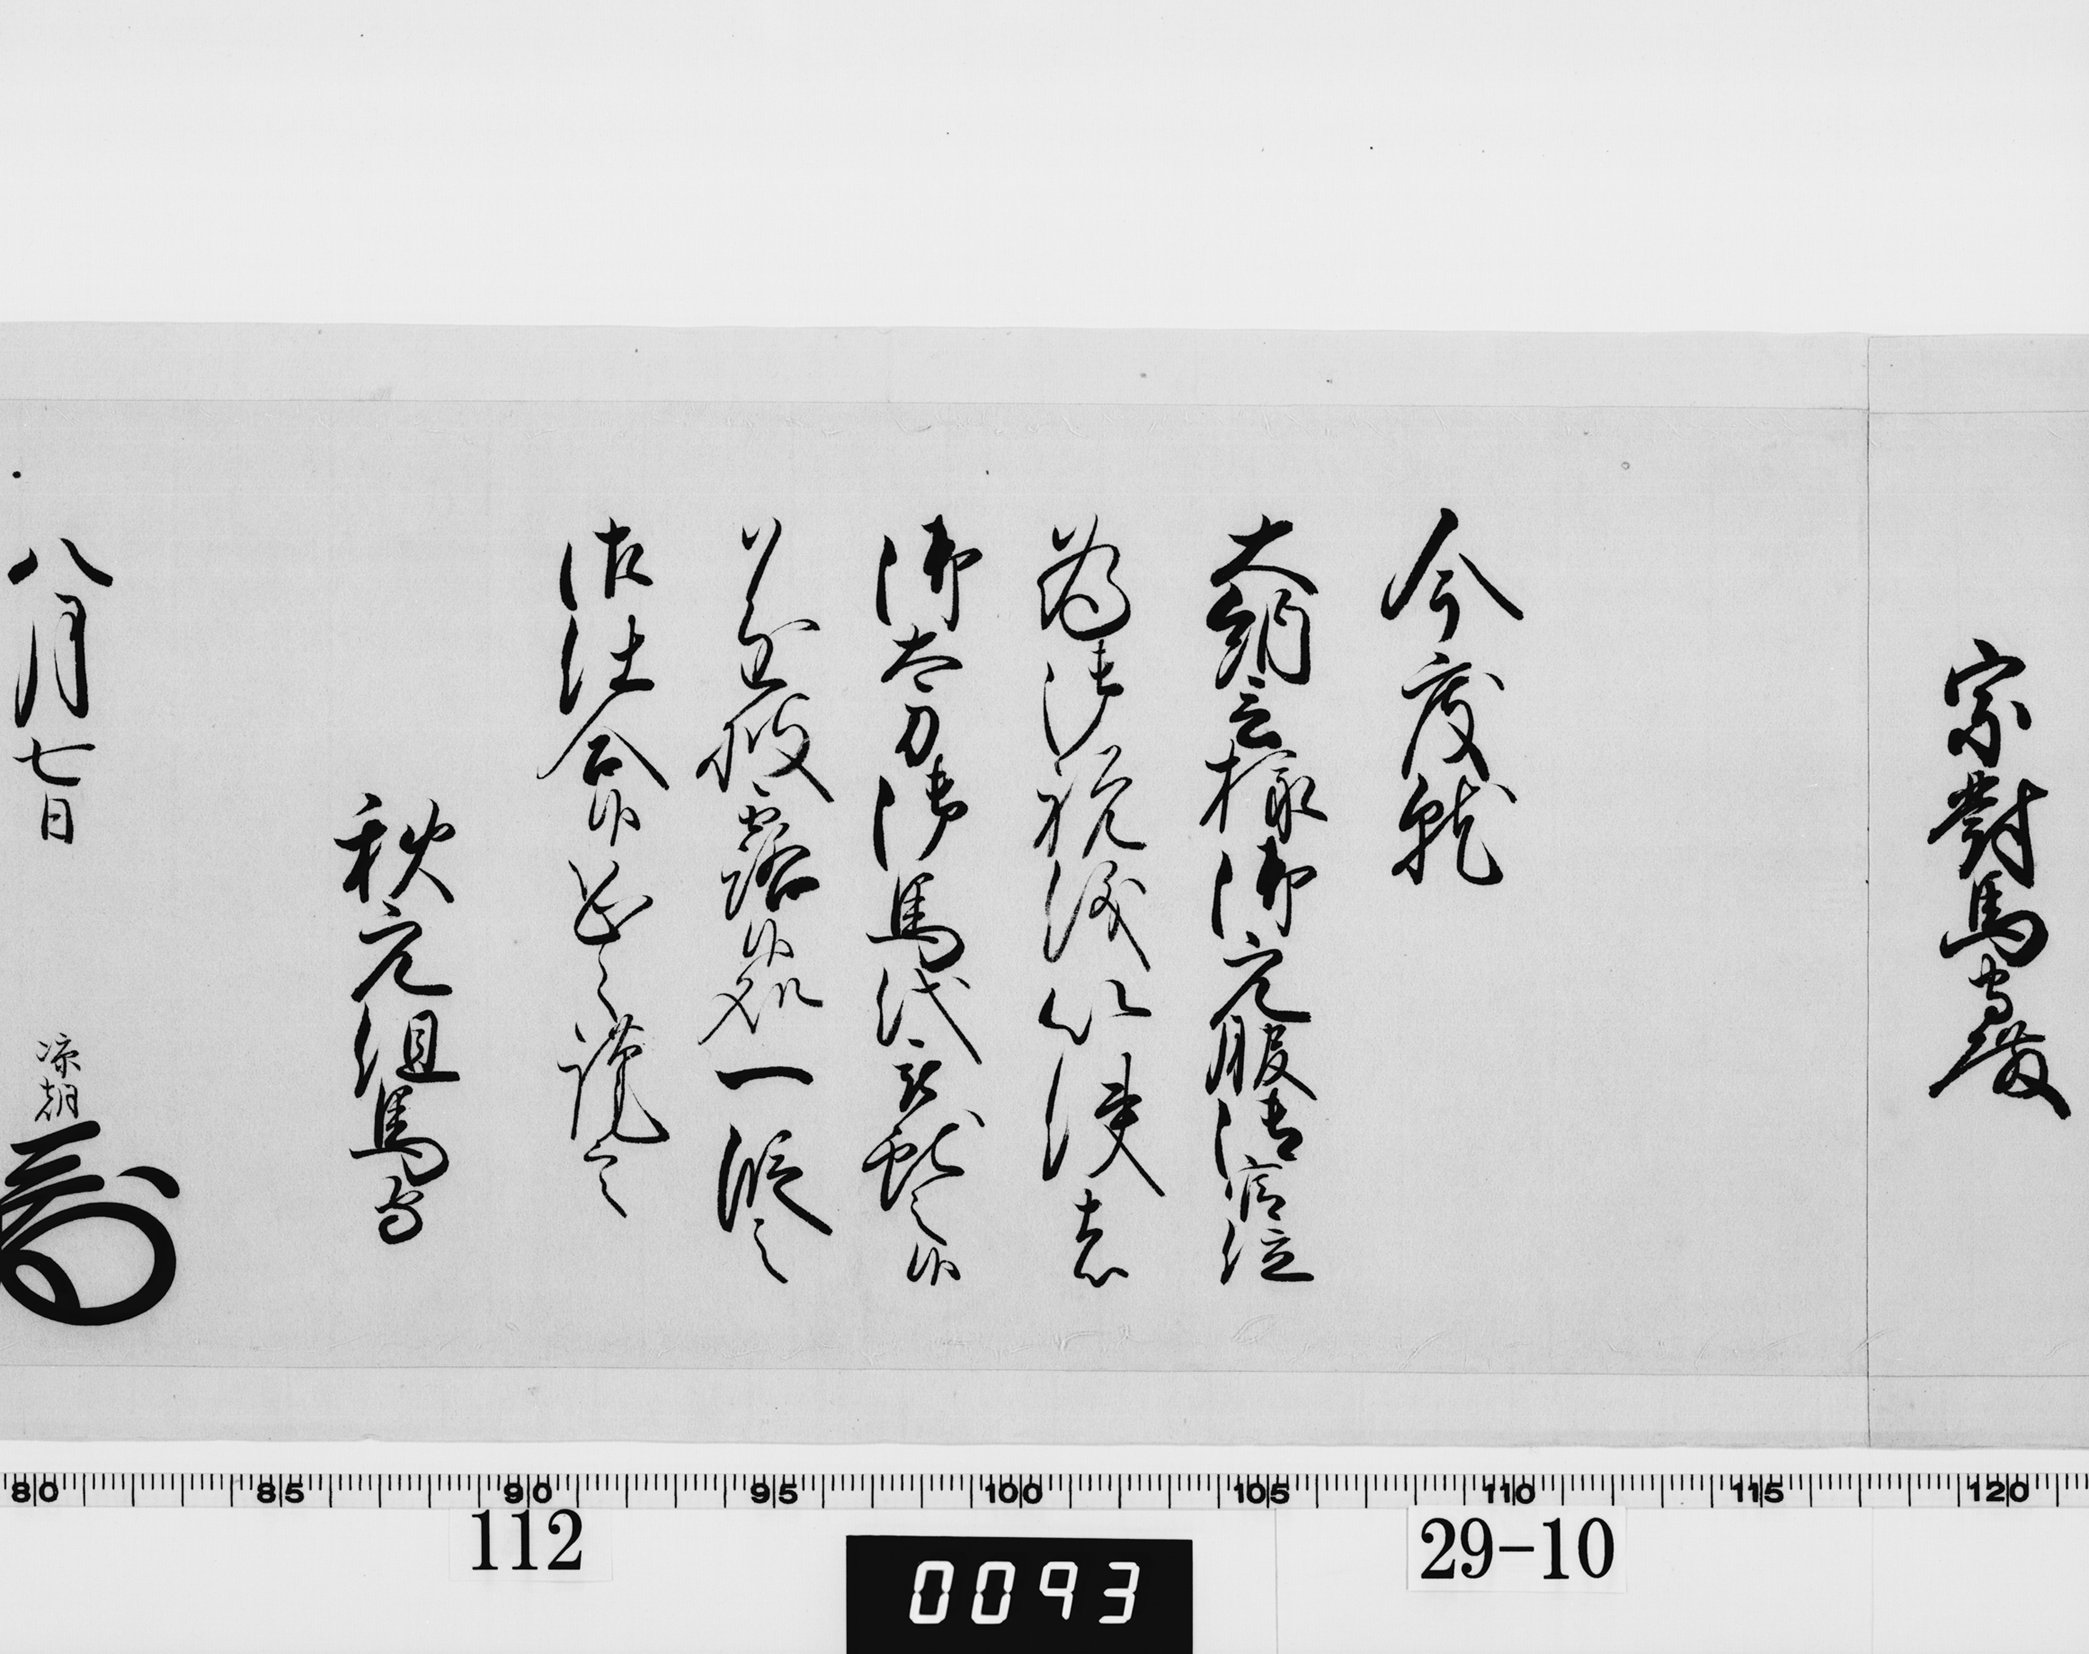 宗對馬守殿
今度就
大納言様御元服御官位
為御祝儀以使者
御太刀御馬代被献之候
遂披露候處一段之
御仕合候恐々謹言
秋元但馬守
八月七日 凉朝
80 85 90 95 100 105 110 115 120
112
0093
29-10